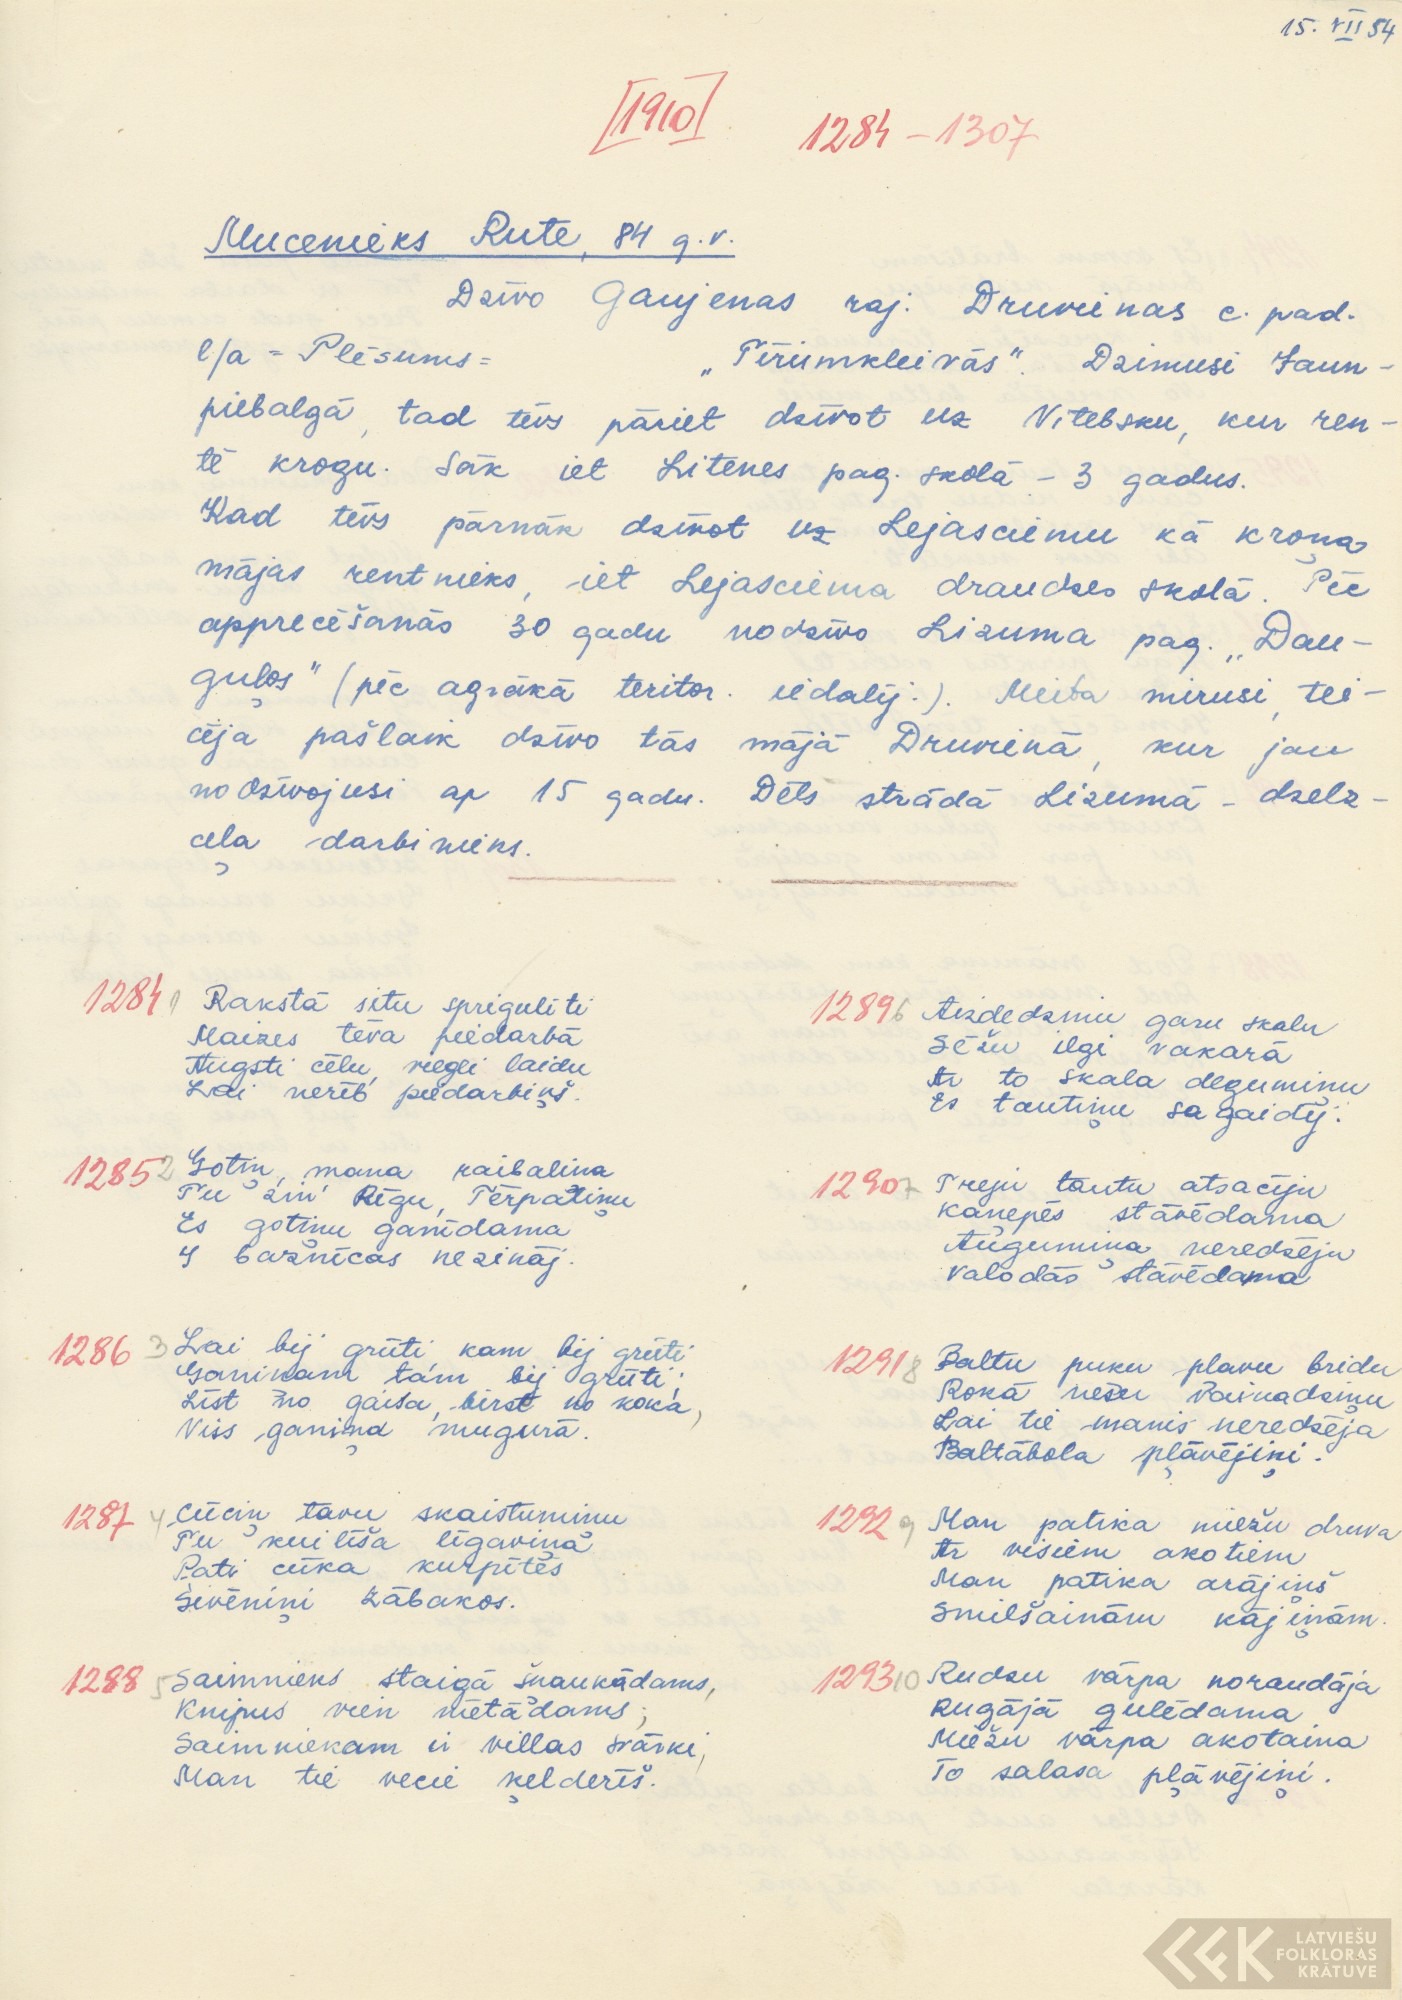 15. VII 54
[1910] 1284 – 1307
Mucenieks Rute, 84 g. v.
Dzīvo Gaujenas raj. Druvienas c. pad.
l/a = Plēsums = „Tīrumkleivās". Dzimusi Jaun-
piebalgā, tad tēvs pāriet dzīvot uz Vitebsku, kur ren-
tē krogu. Sāk iet Litenes pag. skolā – 3 gadus.
Kad tēvs pārnāk dzīvot uz Lejasciemu kā kroņa
mājas rentnieks, iet Lejasciema draudzes skolā. Pēc
apprecēšanās 30 gadu nodzīvo Lizuma pag. „Dau-
guļos" (pēc agrākā teritor. iedalīj.). Meita mirusi, tei-
cēja pašlaik dzīvo tās mājā Druvienā, kur jau
nodzīvojusi ap 15 gadu. Dēls strādā Lizumā – dzelz-
ceļa darbinieks.
1284 1 Rakstā situ spriguliti
Maizes tēva piedarbā
Augsti cēlu, viegli laidu
Lai nerīb piedarbiņš.
1285 2 Gotiņ, mana raibaliņa
Tu zin' Rīgu, Tērpatiņu
Es gotiņu ganīdama
I baznīcas nezināj.
1286 3 Lai bij grūti kam bij grūti
Ganiņam tam bij grūti;
Līst no gaisa, birst no koka,
Viss ganiņa mugurā.
1287 4 Cūciņ tavu skaistumiņu
Tu kuilīša līgaviņa
Pati cūka kurpītēs
Sivēniņi zābakos.
1288 5 Saimnieks staigā šņaukādams,
Knipus vien mētādams;
Saimniekam ir villas svārki,
Man tie vecie ķelderīš.
1289 6 Aizdedzinu garu skalu
Sēžu ilgi vakarā
Ar to skala degumiņu
Es tautiņu sagaidīj.
1290 7 Treju tautu atsacīju
Kaņepēs stāvēdama
Augumiņa neredzēju
Valodās stāvēdama
1291 8 Baltu puķu pļavu bridu
Rokā nešu vaiņadziņu
Lai tie manis neredzēja
Baltābola pļāvējiņi.
1292 9 Man patika miežu druva
Ar visiem akotiem
Man patika arājiņš
Smilšainām kājiņām.
1293 10 Rudzu vārpa noraudāja
Rugājā gulēdama
Miežu vārpa akotaina
To salasa pļāvējiņi.
LATVIEŠU
FOLKLORAS
KRĀTUVE